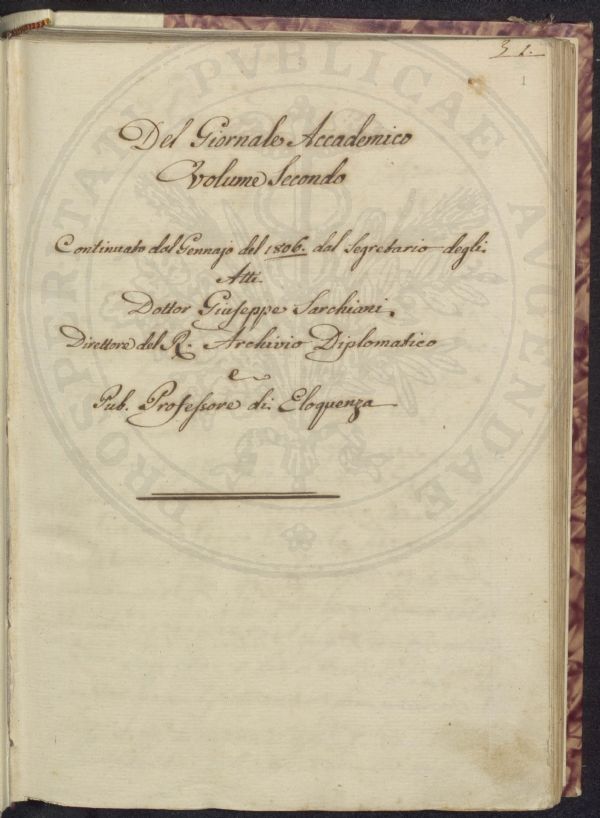 31.
1
Del Giornale Accademico
Volume Secondo
Continuato dal Gennajo del 1806. dal Segretario degli
Atti.
Dottor Giuseppe Sarchiani,
Direttore del R. Archivio Diplomatico
e
Pub. Professore di Eloquenza
PROSPERITATI PVBLICAE AVGENDAE